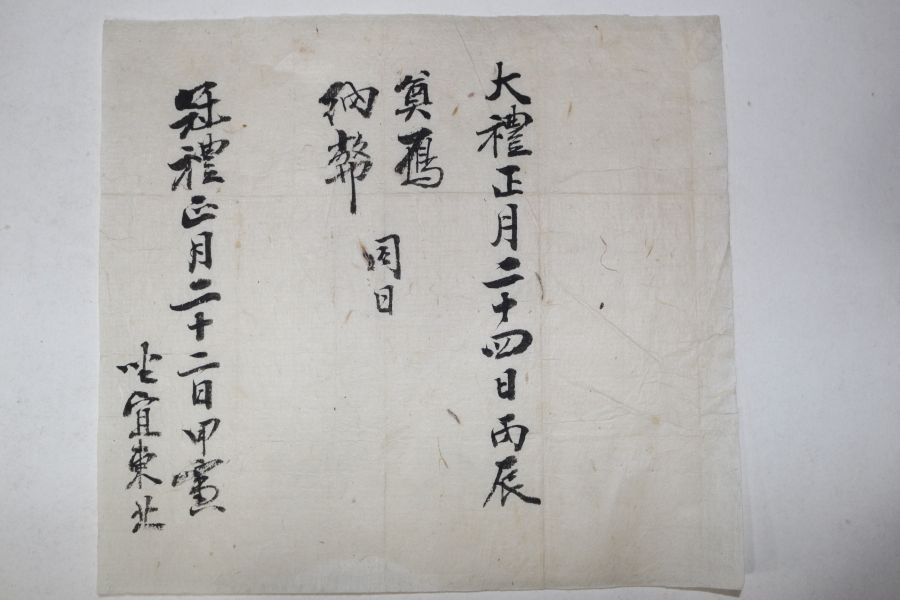 大禮正月二十四日丙辰
奠鴈
納幣
同日
冠禮正月二十二日甲寅
坐宜東北